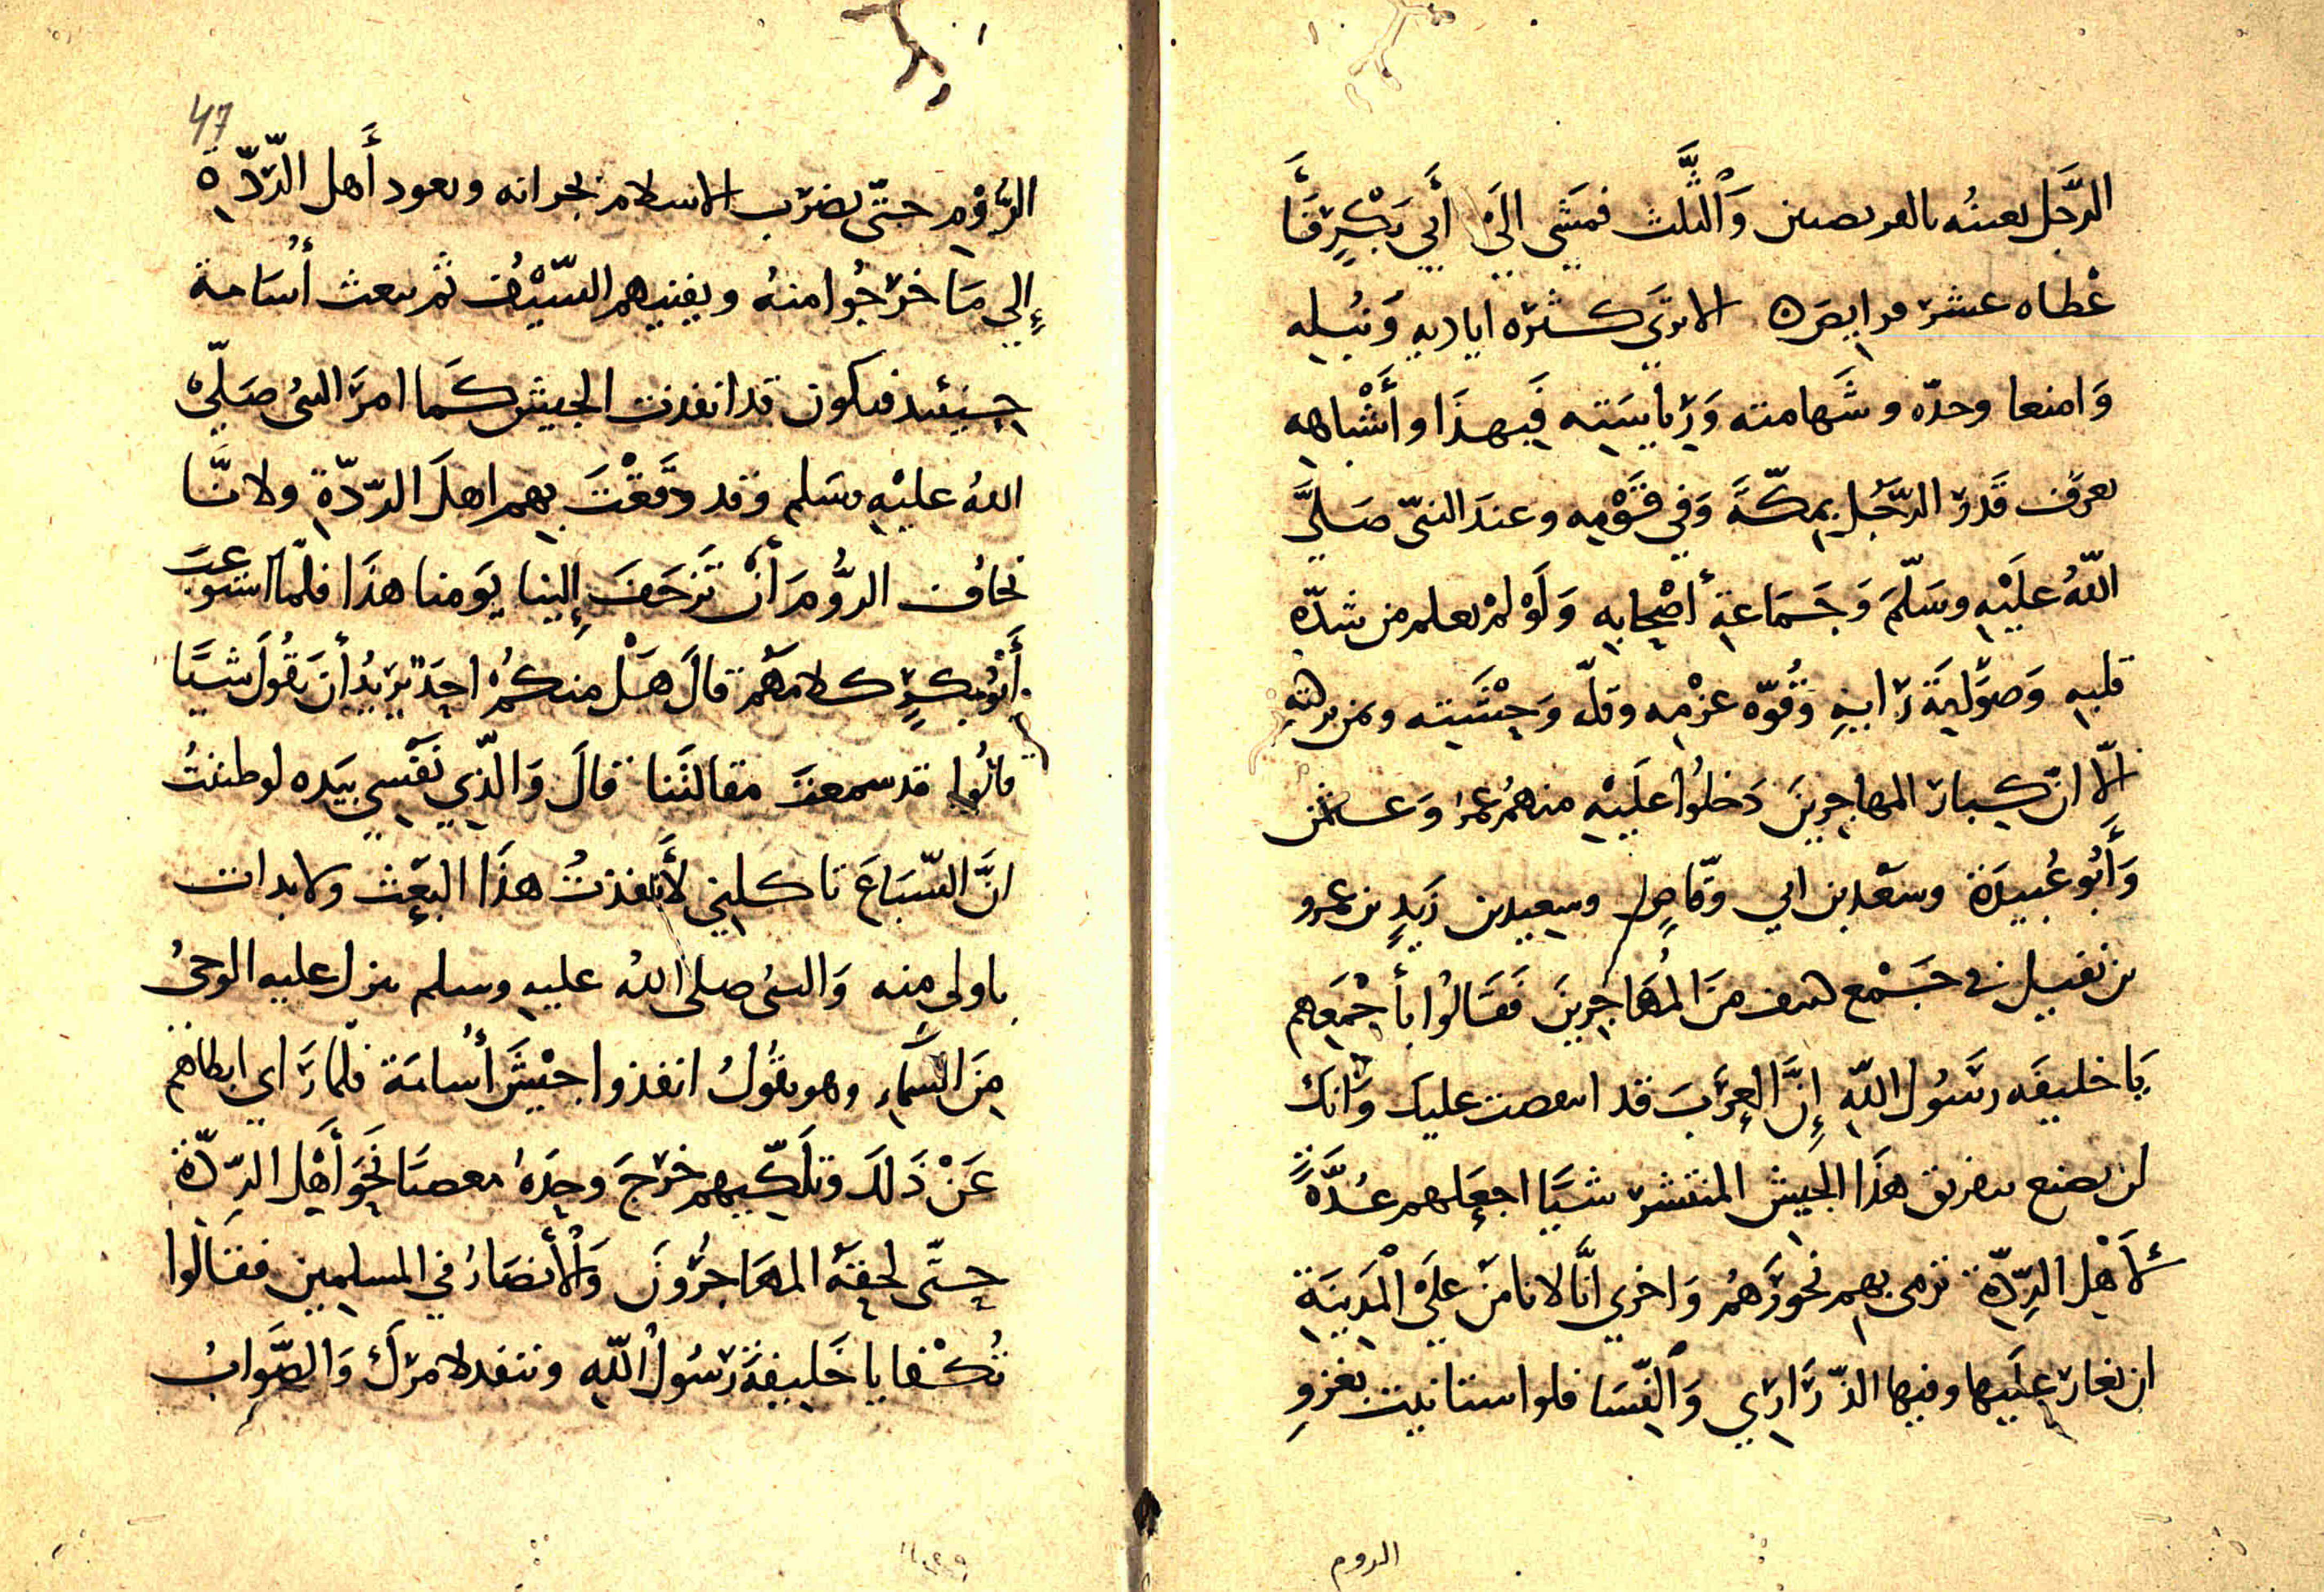 الرَّجَل بعينه بالفريصين وَالثّلث فمَشَى الَى أَبي بَكْرٍ فَأَ
عْطاه عشر فرايض الا ترَى كثره اياديهِ وَنَبْله
وَامنعا وحدّه وشَهامته وَرِيَاسَته فَبهذَا وأَشْباهه
يعرف قَدر الرّجُل بمكّةَ وَفي قَوْمِه وعندَ النبّى صَلىَّ
اللّهُ علَيْهِ وسَلّمَ وَجَمَاعةِ أصْحابِه وَلَوْ لمْ يعلم من شدّه
قلبهِ وَصوَّليةَ رَايهِ وَقُوّه عزْمِه وقلّه وَحْشَيته ويمن
الّا انّ كبار المهاجرينَ دَخلوُا علَيْهِ منهمُ عمر وَعثمن
وَأَبُو عُبيدَة وسعْد بن ابي وقّاصٍ وسعِيد بن زَيدٍ بن عمرو
بن نفيل في جَمْع من المُهَاجِرينَ فَقَالوُا بأجْمَعِهم
يَا خليفَه رسُول اللّهِ إنَّ العرَبَ قد انتقضت عليك وَانك
لن تصنع بتفريق هذَا الجيش المنتشر شيَيا اجعَلهم عُدّةً
لأَهْل الردّة نرمى بهم نحورَهُم وَاخري انَّا لا نامَنْ علَى الْمَدِينَة
ان يغار علَيها وفيها الذّرَاري وَالنّسَا فلو استانيت بغزوِ
الروم
47
الرُّوْمِ حتّى يضرَب الاسلام بجرانه ويعود أَهل الرّدّة
إلي مَا خرَجُوا منهُ ويفنيهم السّيْفُ ثم تبعث أُسَامة
حينئيذ فنكون قد انفذت الجيش كَما امرَ النبىُ صَلّى
اللهُ عليْهِ وسَلم وقد دفَعْتَ بهم اهلَ الردّةِ ولانّا
نخاف الرُّومَ أنْ تَزحَفَ إلينا يَومنا هذَا فلمّا استوعبَ
أَبُو بكرٍ كلامَهُم قالَ هَلْ منكمُ احَدٌ يرَيدُ أنَ يقُولَ شيَيا
قالوُا قد سمعتَ مقالتَنا قالَ وَالّذِي نَفْسِي بيَده لو ظننتُ
انَّ السّبَاعَ تاكلنِي لأَنفذتُ هذَا البعْث ولا بدات
باولى منه وَالنبىُ صلى اللهُ عليهِ وسلم ينزل عليه الوحىُ
مِنَ السّمَاءِ وهو يقُولُ انفذوا جيْشَ أُسامَة فلمّا رَاي ابطاهم
عَنْ ذَلكَ وتلَكّيهم خرَجَ وحدَهُ مغضبَا نحَوَ أَهْل الردّة
حتّى لحقَهُ المهَاجرُونَ وَالأَنصَارُ في المسلمِين فقالَوا
تُكْفا يا خَليفةَ رَسُولُ اللّهِ وننفد لامرَك وَالصَّوابُ